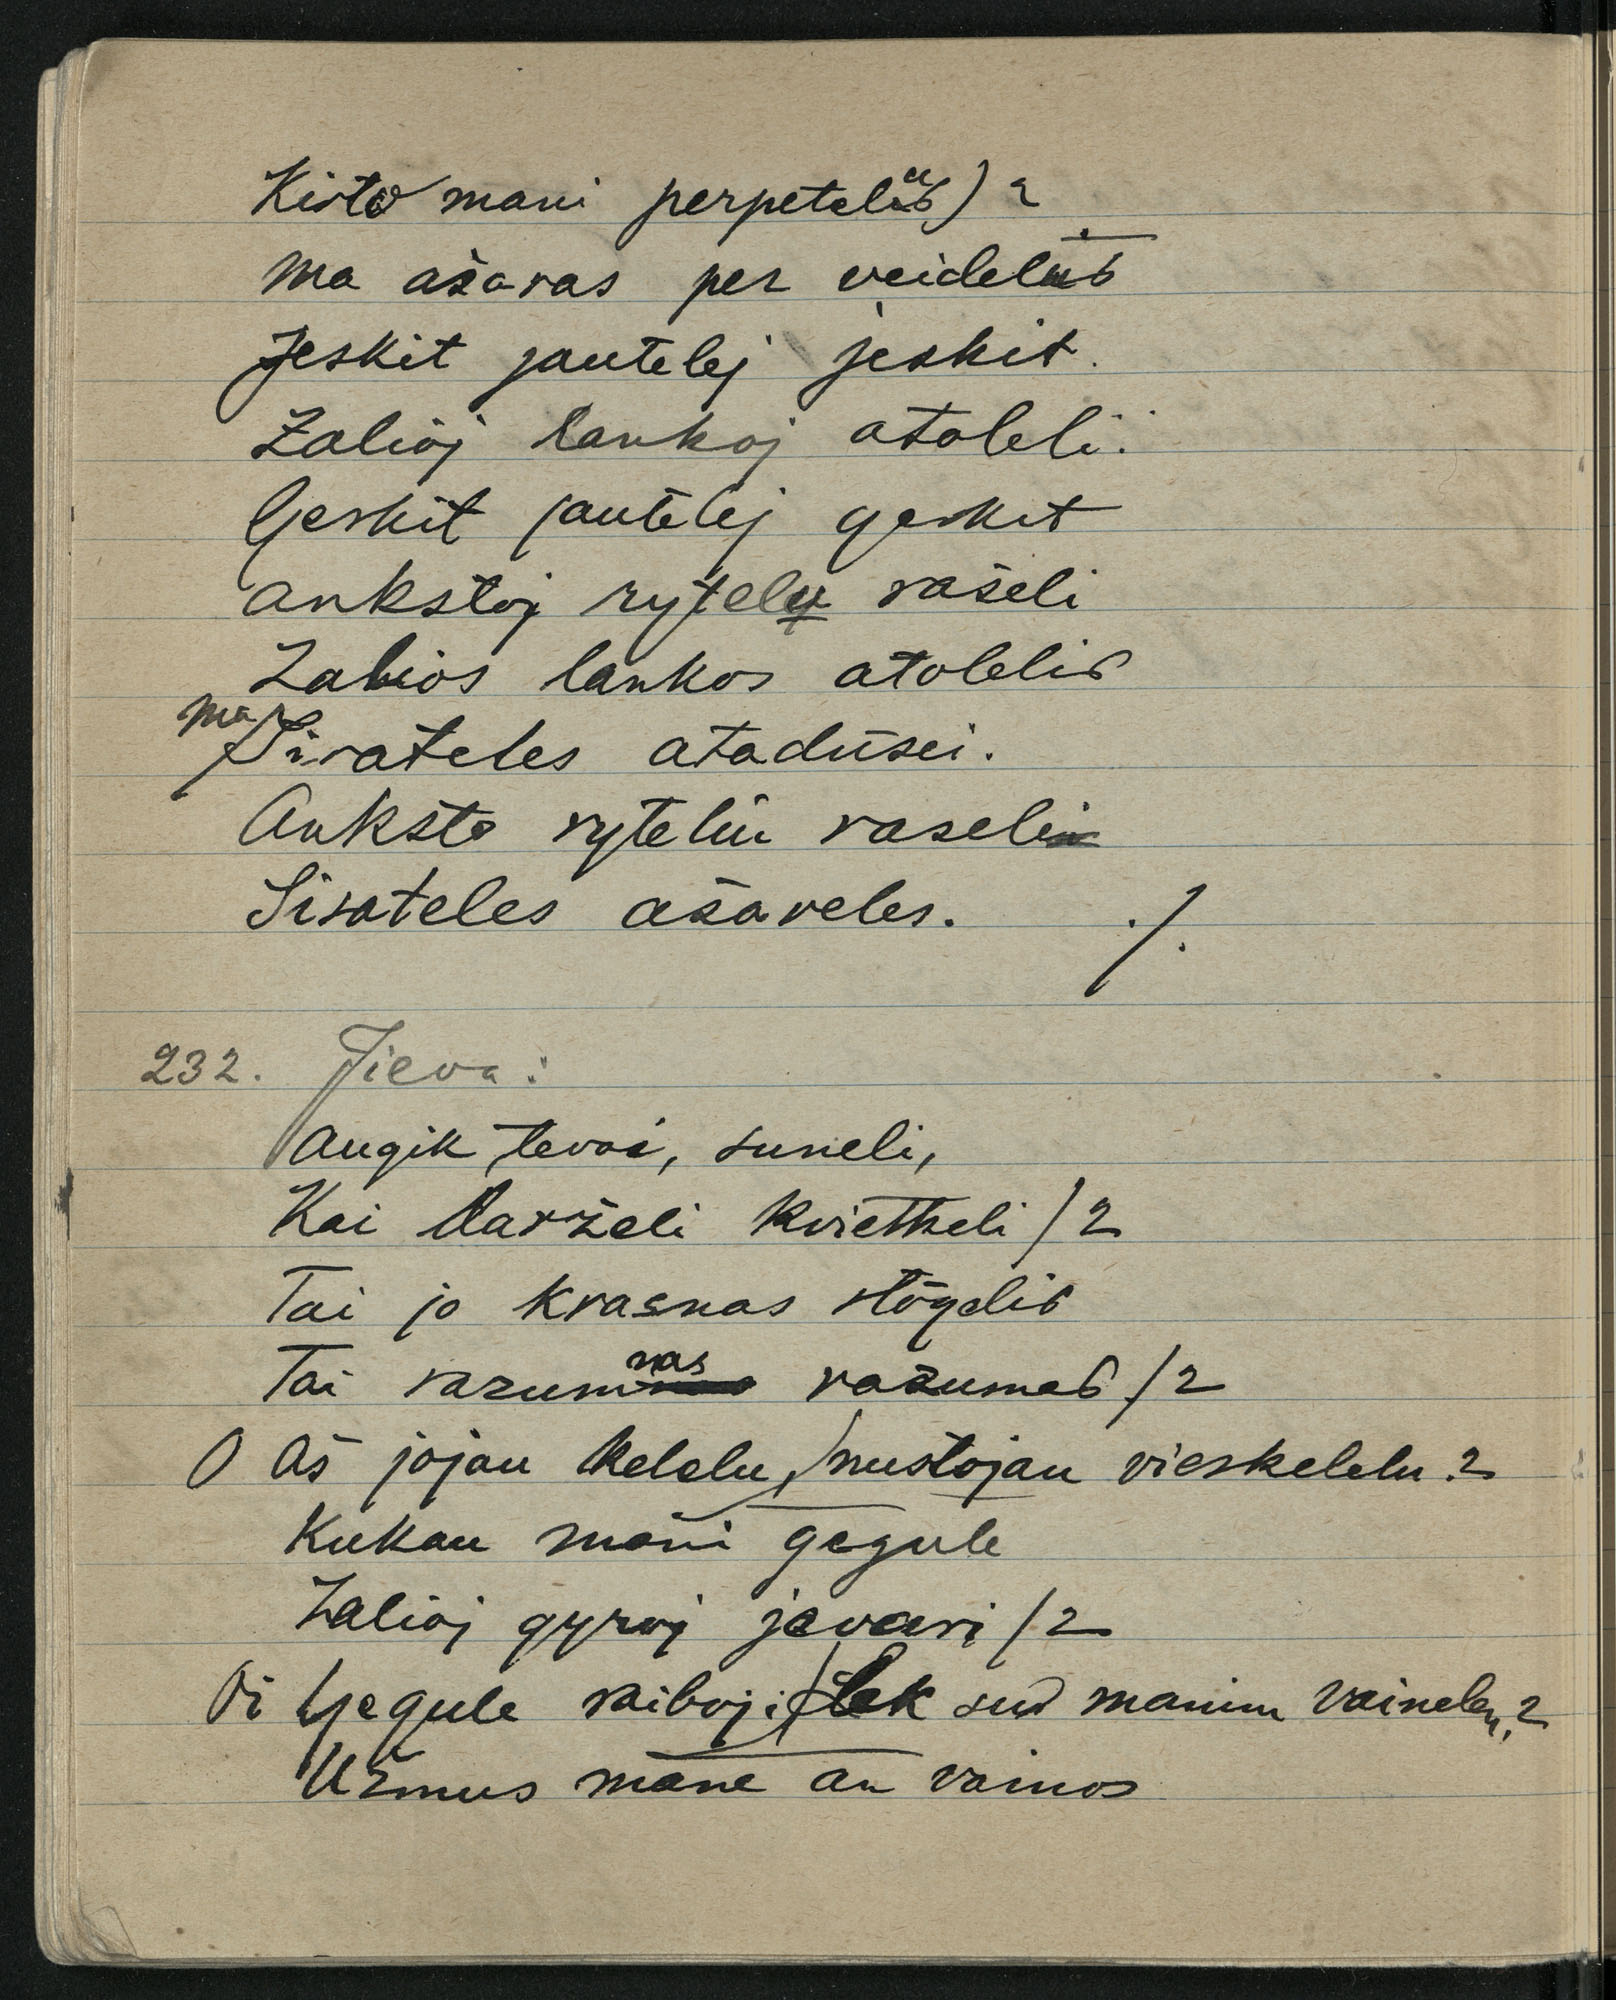 Kisto mani perpetelus) 2
ma ašaras per veidelus
Jeskit jautelej jeskit.
Zalioj lankoj atoleli.
Gerkit jautelej gerkit
ankstoj rytely rašeli
Zalios lankos atolelis
ma Sirateles atadūsei.
Anksto ryteliu raseli
Sirateles ašareles. ./.
232. Jieva:
Augik tevai, suneli,
Kai darželi kvietkeli /2
Tai jo krasnas stōgelis
Tai razumnas razumas /2
O Aš jojau kelelu, /nustojau vieskelelu. 2
Kukau mani gegule
Zalioj gyroj javari /2
Oi Gegule raiboji /Lek sus manim vainelen, 2
Užmus mane an vainos